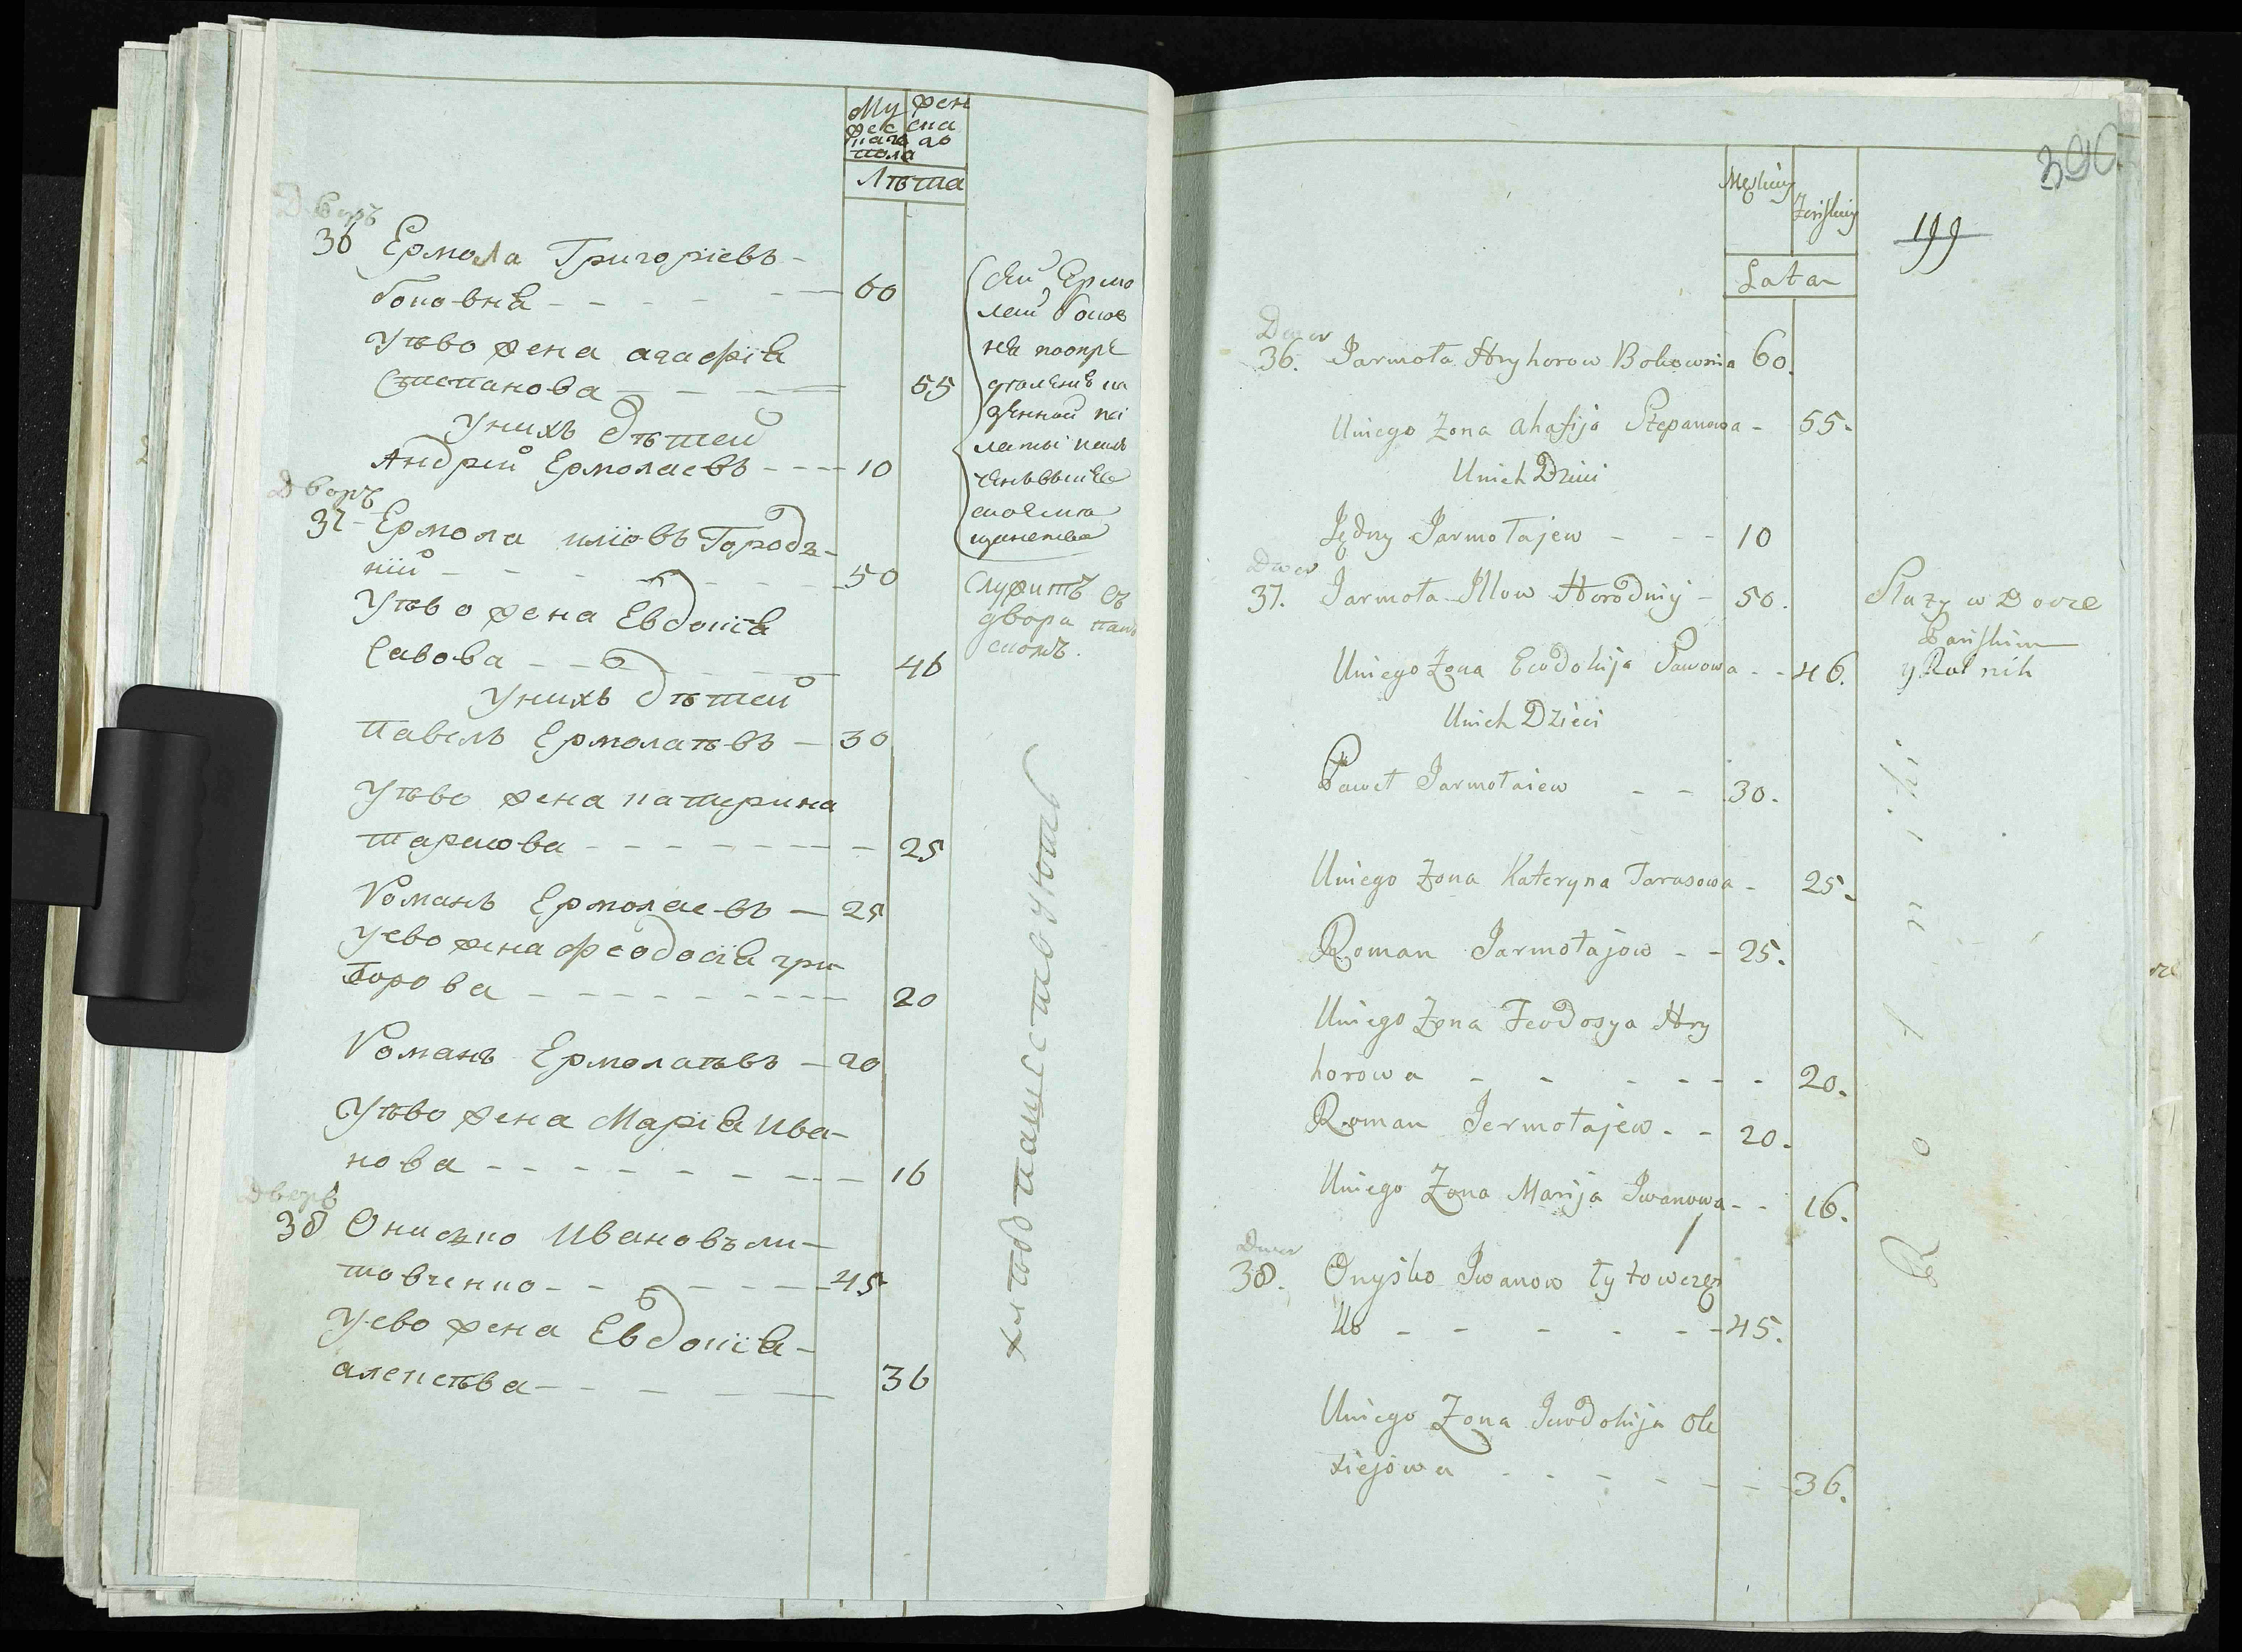 Му жен
жес ска
каго го
пола
Лѣта
Дворъ
36 Ермола Григоріевъ -
боковня - - - - - - 60
У ѣво жена агафія
Степанова - - - - 55
У нихъ дѣтей
Андрей Ермолаевъ - - - - 10
Дворъ
37 - Ермола иліовъ Городъ-
ній - - - - - - - 50
У ѣво жена Евдокія
Савова - - - - 46
У нихъ дѣтей
Павелъ Ермолаѣвъ - 30
У ѣво жена катерина
тарасова - - - - - - - - 25
Романъ Ермолаевъ - 25
У ево жена феодосія гри
горова - - - - - - - - - 20
Романъ Ермолаѣвъ - 20
У ѣво жена Марія Ива-
нова - - - - - - - - - 16
Дворъ
38 Онисько Ивановъ ли-
товченко - - - - - - - 45
У ево жена Евдокія -
алексѣва - - - - - 36
Сей Ермо
лай боков
ня
Служитъ въ
двора пан
скомъ.
хлѣбопашествуютъ
390
199
Męskiey
Żeńskiey
Lata
Dwor
36. Jarmoła Hryhorow Bokownia 60.
U niego Żona Ahafija Stepanowa - 55 -
U nich Dzieci
Jędry Jarmołajew - - - 10
Dwor
37. Jarmoła Illow Horodniy - 50.
U niego Żona Ewdokija Sawowa - - 46.
U nich Dzieci
Paweł Jarmołaiew - - 30.
U niego Żona Kateryna Tarasowa - 25.
Roman Jarmołajow - - 25.
U niego Żona Feodosya Hry
horowa - - - - - - 20.
Roman Jermołajew. - 20.
U niego Żona Marija Iwanowa - - 16.
Dwor
38. Onyśko Iwanow Łytowczeń
ko - - - - - - 45.
U niego Żona Jewdokija Ole
xiejowa - - - - - - - 36.
Służy w Dorze
Pańskim
y Rolnik
Rolniki